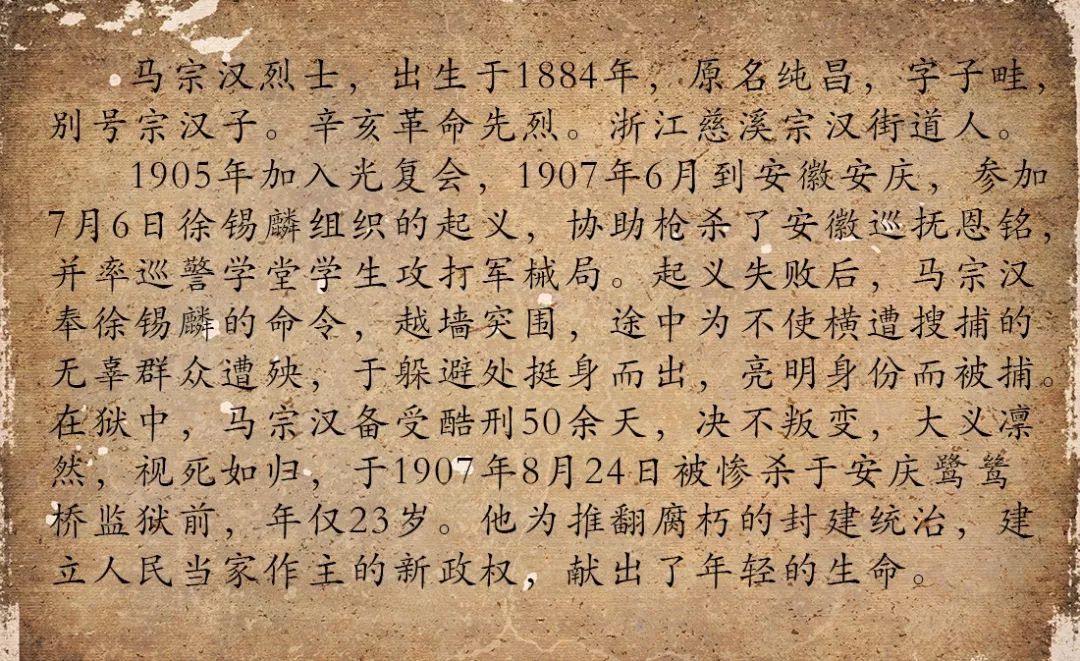 马宗汉烈士，出生于1884年，原名纯昌，字子畦，
别号宗汉子。辛亥革命先烈。浙江慈溪宗汉街道人。
1905年加入光复会，1907年6月到安徽安庆，参加
7月6日徐锡麟组织的起义，协助枪杀了安徽巡抚恩铭，
并率巡警学堂学生攻打军械局。起义失败后，马宗汉
奉徐锡麟的命令，越墙突围，途中为不使横遭搜捕的
无辜群众遭殃，于躲避处挺身而出，亮明身份而被捕。
在狱中，马宗汉备受酷刑50余天，决不叛变，大义凛
然，视死如归，于1907年8月24日被惨杀于安庆鹭鸶
桥监狱前，年仅23岁。他为推翻腐朽的封建统治，建
立人民当家作主的新政权，献出了年轻的生命。